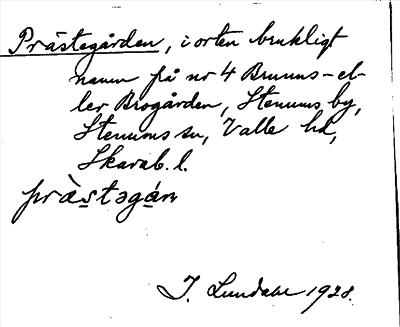 Prästegården, i orten brukligt
namn på nr 4 Brunns- el-
ler Brogården, Stenums by,
Stenums sn, Valle hd,
Skarab. l.
pràstəgán
J. Lundahl 1928.